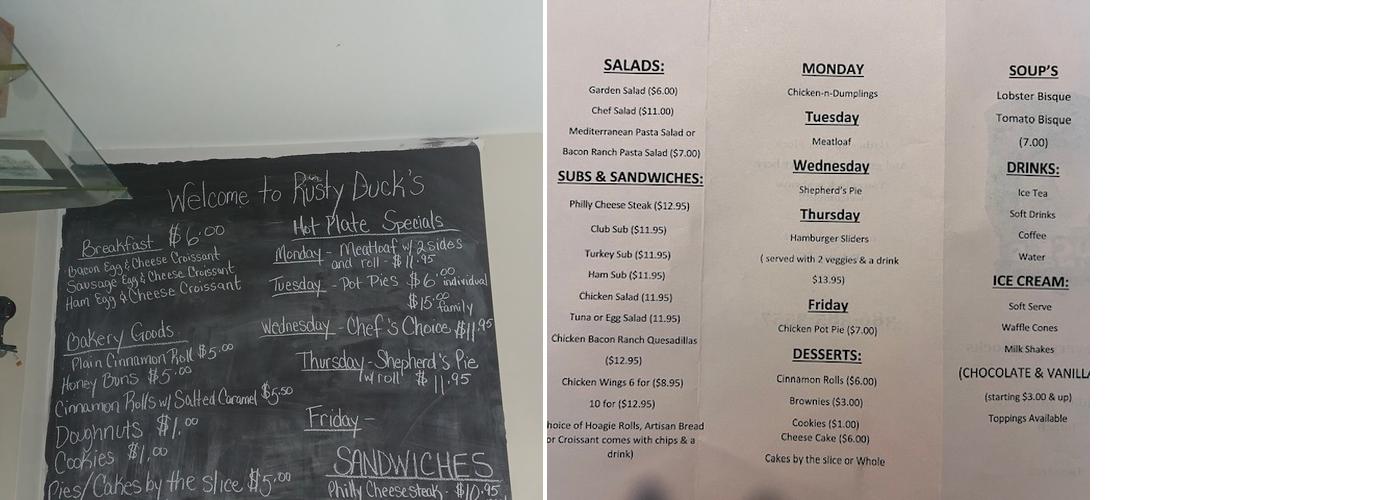 Welcome to Rusty Duck's
Breakfast $6.00
Bacon Egg & Cheese Croissant
Sausage Egg & Cheese Croissant
Ham Egg & Cheese Croissant
Bakery Goods
Plain Cinnamon Roll $5.00
Honey Buns $5.00
Cinnamon Rolls w/ Salted Caramel $5.50
Doughnuts $1.00
Cookies $1.00
Pies/Cakes by the slice $5.00
Hot Plate Specials
Monday - Meatloaf w/ 2 sides
and roll - $11.95
Tuesday - Pot Pies $6.00 individual
$15.00 family
Wednesday - Chef's Choice $11.95
Thursday - Shepherd's Pie
w/roll $11.95
Friday -
SANDWICHES
Philly Cheesesteak - $10.95
SALADS:
Garden Salad ($6.00)
Chef Salad ($11.00)
Mediterranean Pasta Salad or
Bacon Ranch Pasta Salad ($7.00)
SUBS & SANDWICHES:
Philly Cheese Steak ($12.95)
Club Sub ($11.95)
Turkey Sub ($11.95)
Ham Sub ($11.95)
Chicken Salad (11.95)
Tuna or Egg Salad (11.95)
Chicken Bacon Ranch Quesadillas
($12.95)
Chicken Wings 6 for ($8.95)
10 for ($12.95)
hoice of Hoagie Rolls, Artisan Bread
or Croissant comes with chips & a
drink)
MONDAY
Chicken-n-Dumplings
Tuesday
Meatloaf
Wednesday
Shepherd's Pie
Thursday
Hamburger Sliders
( served with 2 veggies & a drink
$13.95)
Friday
Chicken Pot Pie ($7.00)
DESSERTS:
Cinnamon Rolls ($6.00)
Brownies ($3.00)
Cookies ($1.00)
Cheese Cake ($6.00)
Cakes by the slice or Whole
SOUP'S
Lobster Bisque
Tomato Bisque
(7.00)
DRINKS:
Ice Tea
Soft Drinks
Coffee
Water
ICE CREAM:
Soft Serve
Waffle Cones
Milk Shakes
(CHOCOLATE & VANILLA
(starting $3.00 & up)
Toppings Available